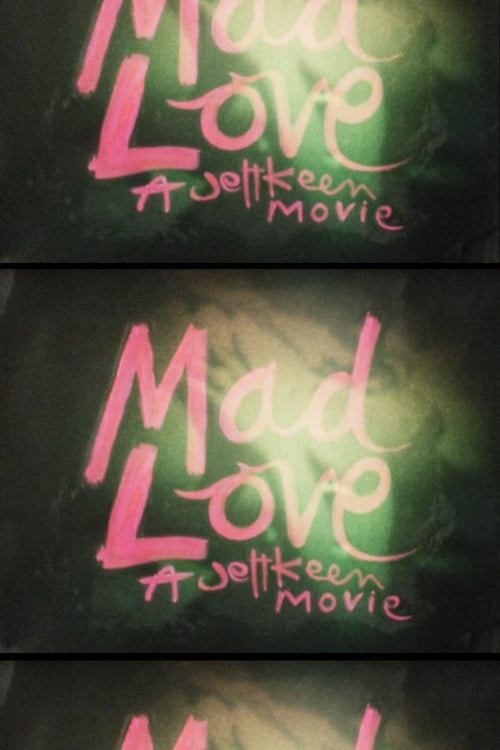 Mad
Love
A Jeff Keen
MOVIE
Mad
Love
A Jeff Keen
MOVIE
M d